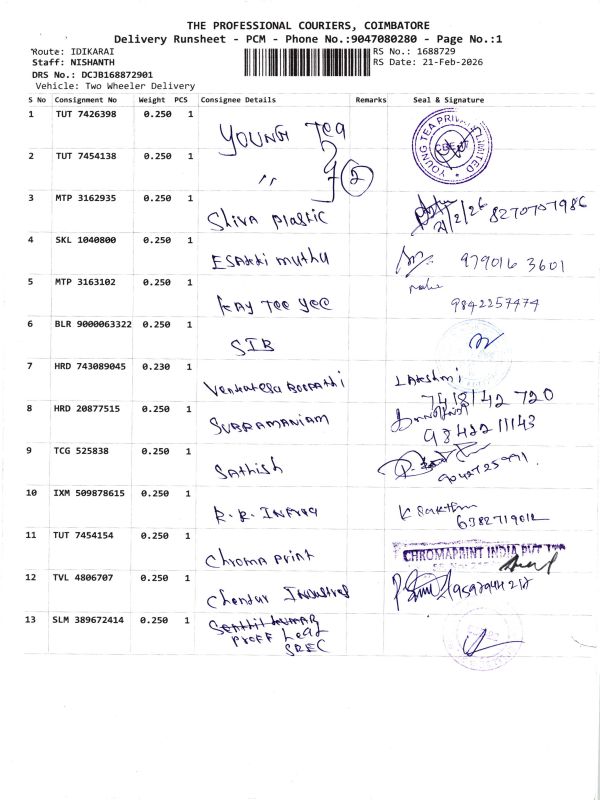 THE PROFESSIONAL COURIERS, COIMBATORE
Delivery Runsheet - PCM - Phone No.:9047080280 - Page No.:1
Route: IDIKARAI
RS No.: 1688729
Staff: NISHANTH
RS Date: 21-Feb-2026
DRS No.: DCJB168872901
Vehicle: Two Wheeler Delivery
S No Consignment No Weight PCS Consignee Details Remarks Seal & Signature
1 TUT 7426398 0.250 1 YOUNG Tea
YOUNG TEA PRIVATE LIMITED
2 TUT 7454138 0.250 1 〃 2
3 MTP 3162935 0.250 1 Shiva plastic 21/2/26 8270707986
4 SKL 1040800 0.250 1 ESAKKi muthu 979016 3601
5 MTP 3163102 0.250 1 KAY Tee yee 9842257474
6 BLR 9000063322 0.250 1 SIB
7 HRD 743089045 0.230 1 Venkatesa Lakshmi
7418142 720
8 HRD 20877515 0.250 1 SUBRAMANIAM
98422 11143
9 TCG 525838 0.250 1 Sathish
10 IXM 509878615 0.250 1 R.R. INFRA
11 TUT 7454154 0.250 1 Chroma print CHROMAPRINT INDIA PVT LTD
12 TVL 4806707 0.250 1 Chendur Industrial
13 SLM 389672414 0.250 1 Senthil kumar
SREC